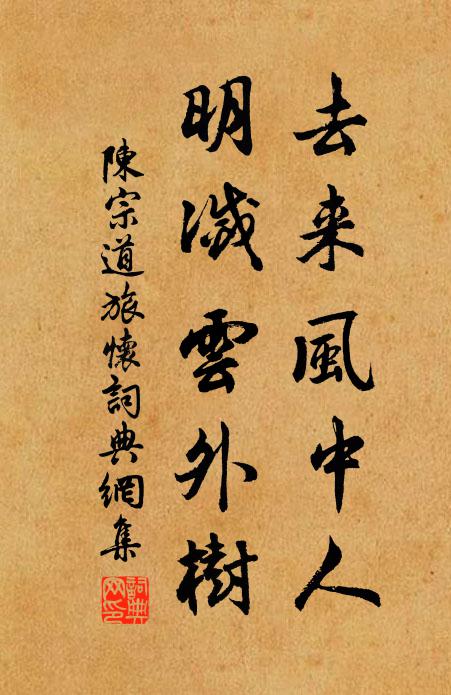 去来風中人
明滅雲外樹
陳宗道旅懷詞典網集
詞典网印